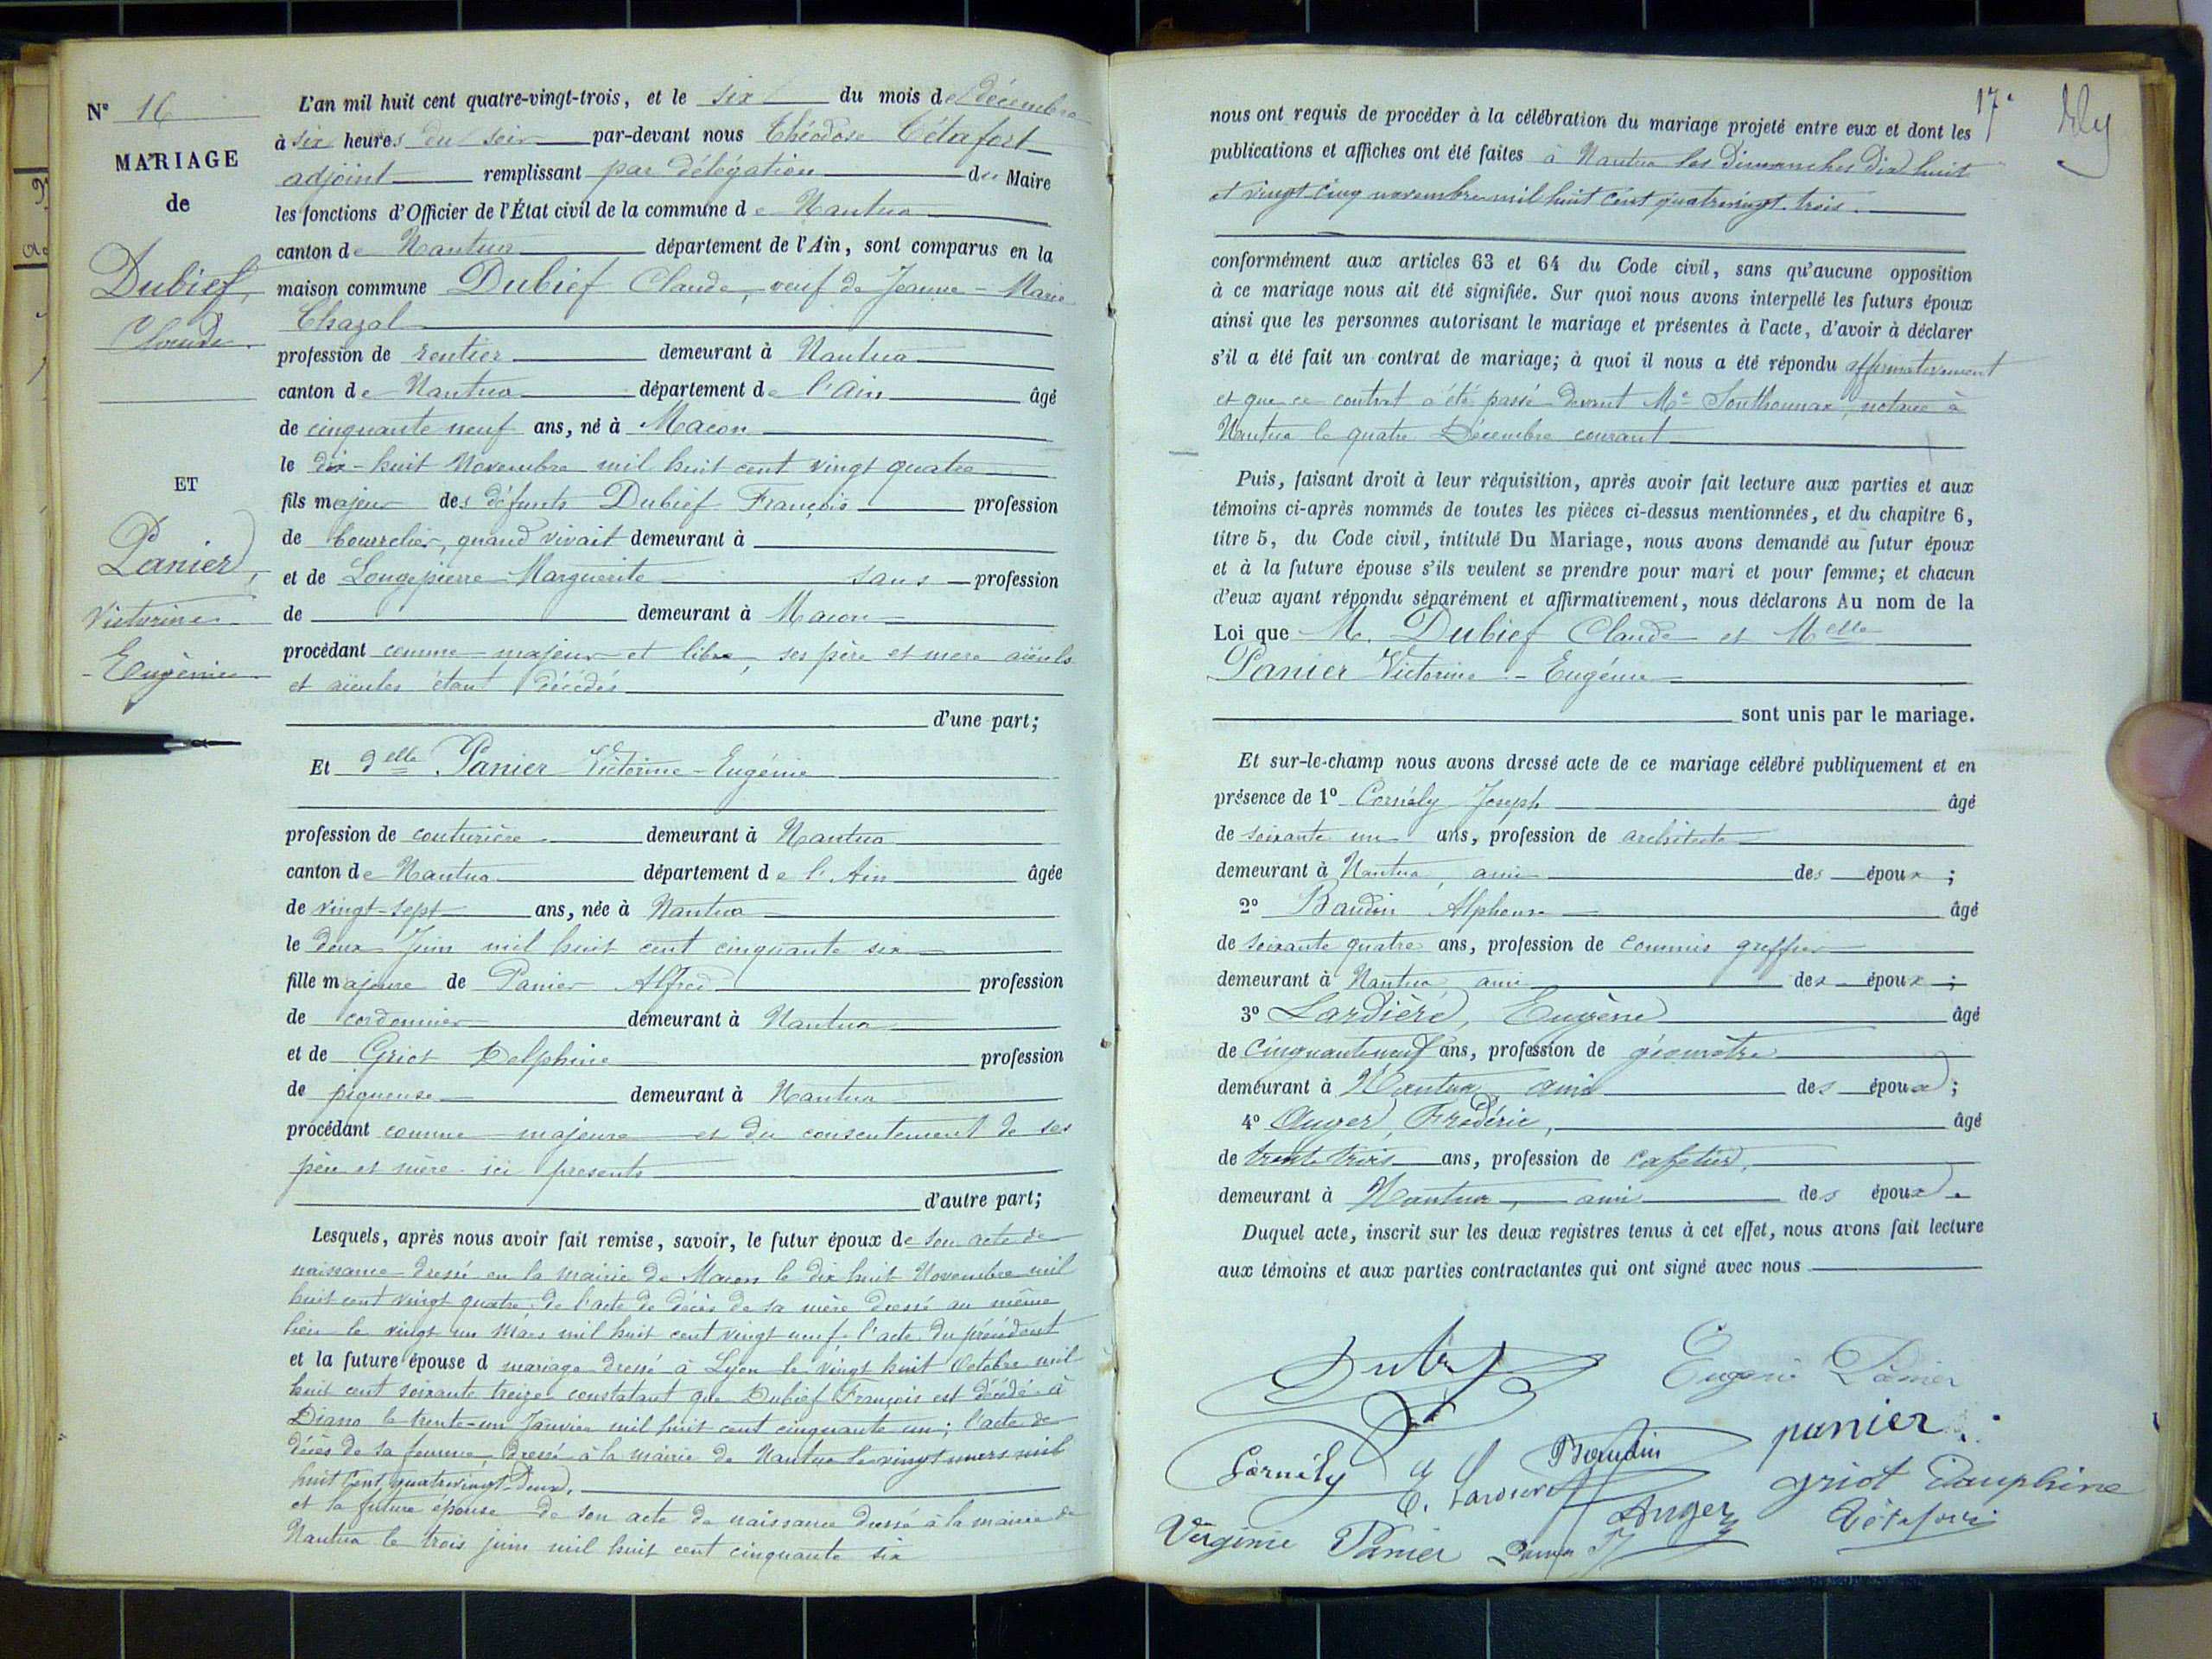 N° 16
MARIAGE
de
Dubief,
Claude.
ET
Panier,
Victorine
Eugénie
L'an mil huit cent quatre-vingt-trois, et le six du mois de décembre
à six heures du soir par-devant nous Théodose Tétafort
adjoint remplissant par délégation du Maire
les fonctions d'Officier de l'État civil de la commune de Nantua
canton de Nantua département de l'Ain, sont comparus en la
maison commune Dubief Claude, veuf de Jeanne-Marie
Chazal
profession de rentier demeurant à Nantua
canton de Nantua département de l'Ain âgé
de cinquante neuf ans, né à Macon
le dix-huit Novembre mil huit cent vingt quatre
fils majeur des défunts Dubief François profession
de bourrelier, quand vivait demeurant à
et de Longepierre Marguerite sans profession
de demeurant à Macon
procédant comme majeur et libre, ses père et mère aïeuls
et aïeules étant décédés
d'une part;
Et Delle Panier Victorine-Eugénie
profession de couturière demeurant à Nantua
canton de Nantua département de l'Ain âgée
de vingt-sept ans, née à Nantua
le deux Juin mil huit cent cinquante six
fille majeure de Panier Alfred profession
de cordonnier demeurant à Nantua
et de Griot Delphine profession
de piqueuse demeurant à Nantua
procédant comme majeure et du consentement de ses
père et mère ici présents
d'autre part;
Lesquels, après nous avoir fait remise, savoir, le futur époux de son acte de
naissance dressé en la mairie de Macon le dix huit Novembre mil
huit cent vingt quatre; de l'acte de décès de sa mère dressé au même
lieu le vingt un Mars mil huit cent vingt neuf. l'acte du précédent
et la future épouse d mariage dressé à Lyon le vingt huit Octobre mil
huit cent soixante treize constatant que Dubief François est décédé à
le trente-un Janvier mil huit cent cinquante un; l'acte de
décès de sa femme, dressé à la mairie de Nantua le vingt mars mil
huit cent quatrevingt-deux.
et la future épouse de son acte de naissance dressé à la mairie de
Nantua le trois juin mil huit cent cinquante six
17.
nous ont requis de procéder à la célébration du mariage projeté entre eux et dont les
publications et affiches ont été faites à Nantua les Dimanches dix huit
et vingt-cinq novembre mil huit cent quatrevingt-trois.
conformément aux articles 63 et 64 du Code civil, sans qu'aucune opposition
à ce mariage nous ait été signifiée. Sur quoi nous avons interpellé les futurs époux
ainsi que les personnes autorisant le mariage et présentes à l'acte, d'avoir à déclarer
s'il a été fait un contrat de mariage; à quoi il nous a été répondu affirmativement
et que ce contrat a été passé devant Me Southonnax, notaire à
Nantua le quatre Décembre courant
Puis, faisant droit à leur réquisition, après avoir fait lecture aux parties et aux
témoins ci-après nommés de toutes les pièces ci-dessus mentionnées, et du chapitre 6,
titre 5, du Code civil, intitulé Du Mariage, nous avons demandé au futur époux
et à la future épouse s'ils veulent se prendre pour mari et pour femme; et chacun
d'eux ayant répondu séparément et affirmativement, nous déclarons Au nom de la
Loi que M. Dubief Claude et Melle
Panier Victorine-Eugénie
sont unis par le mariage.
Et sur-le-champ nous avons dressé acte de ce mariage célébré publiquement et en
présence de 1° Cornély Joseph âgé
de soixante un ans, profession de architecte
demeurant à Nantua, ami des époux;
2° Baudin Alphonse âgé
de soixante quatre ans, profession de commis greffier
demeurant à Nantua ami des époux;
3° Lardière, Eugène âgé
de cinquante neuf ans, profession de géomètre
demeurant à Nantua ami des époux;
4° Auger, Frédéric, âgé
de trente trois ans, profession de cafetier,
demeurant à Nantua, ami des époux.
Duquel acte, inscrit sur les deux registres tenus à cet effet, nous avons fait lecture
aux témoins et aux parties contractantes qui ont signé avec nous
Dubief
Eugénie Panier
panier
Cornély
Baudin
E. Lardière
griot Dauphine
Auger
Tétafort
Virginie Panier